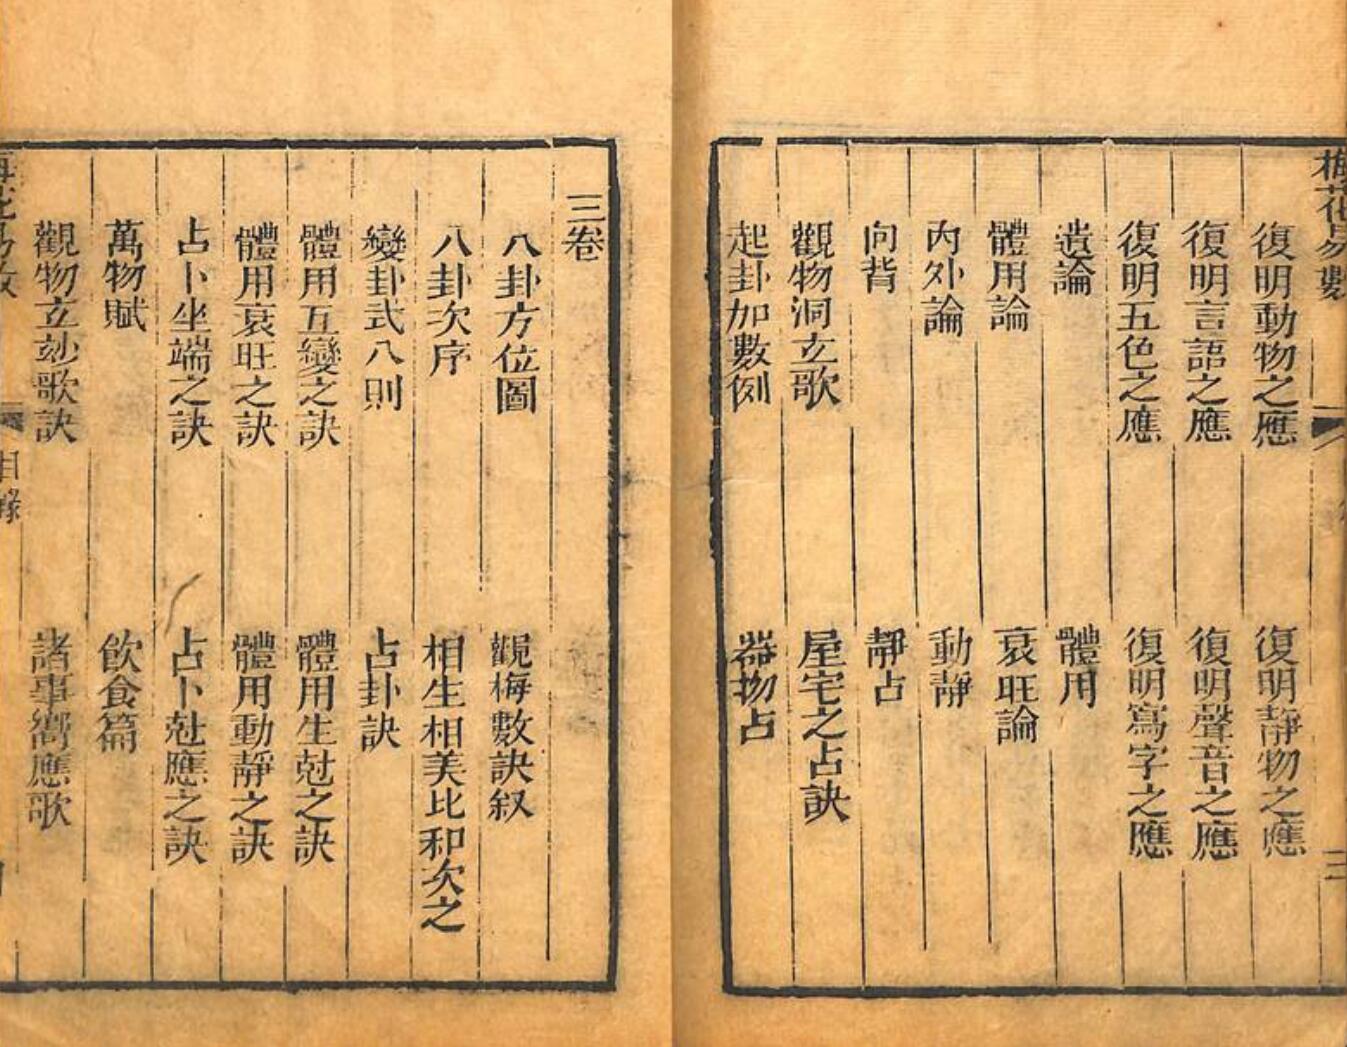 梅花易數
復明動物之應 復明靜物之應
復明言語之應 復明聲音之應
復明五色之應 復明寫字之應
遺論 體用
體用論 衰旺論
內外論 動靜
向背 靜占
觀物洞玄歌 屋宅之占訣
起卦加數例 器物占
三
三卷
八卦方位圖 觀梅數訣叙
八卦次序 相生相美比和次之
變卦式八則 占卦訣
體用互變之訣 體用生尅之訣
體用衰旺之訣 體用動靜之訣
占卜坐端之訣 占卜尅應之訣
萬物賦 飲食篇
觀物玄妙歌訣 諸事響應歌
目錄